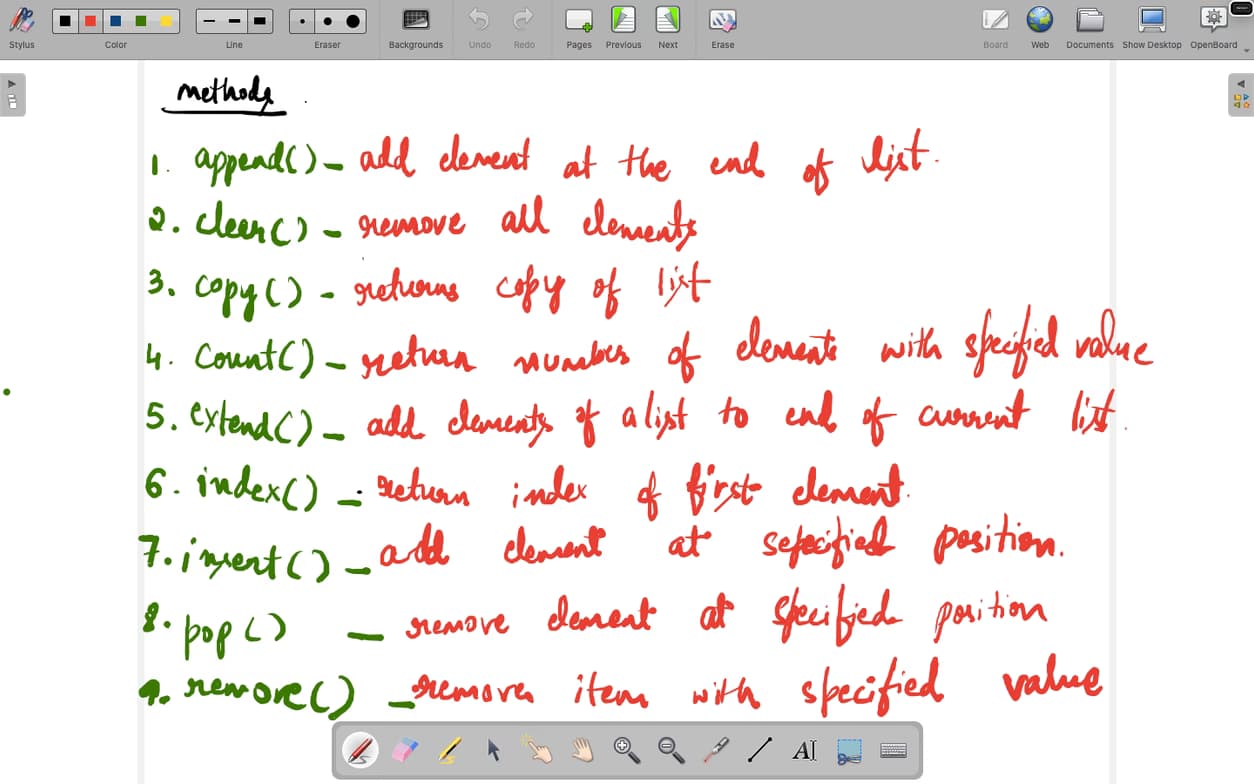 Stylus Color Line Eraser Backgrounds Undo Redo Pages Previous Next Erase Board Web Documents Show Desktop OpenBoard
methods
1. append() - add element at the end of list.
2. cleer() - remove all elements
3. copy() - returns copy of list
4. count() - return number of elements with specified value
5. extend() - add elements of a list to end of current list.
6. index() - return index of first element.
7. insert() - add element at sepecified position.
8. pop() - remove element at specified position
9. remove() - removes item with specified value
AI